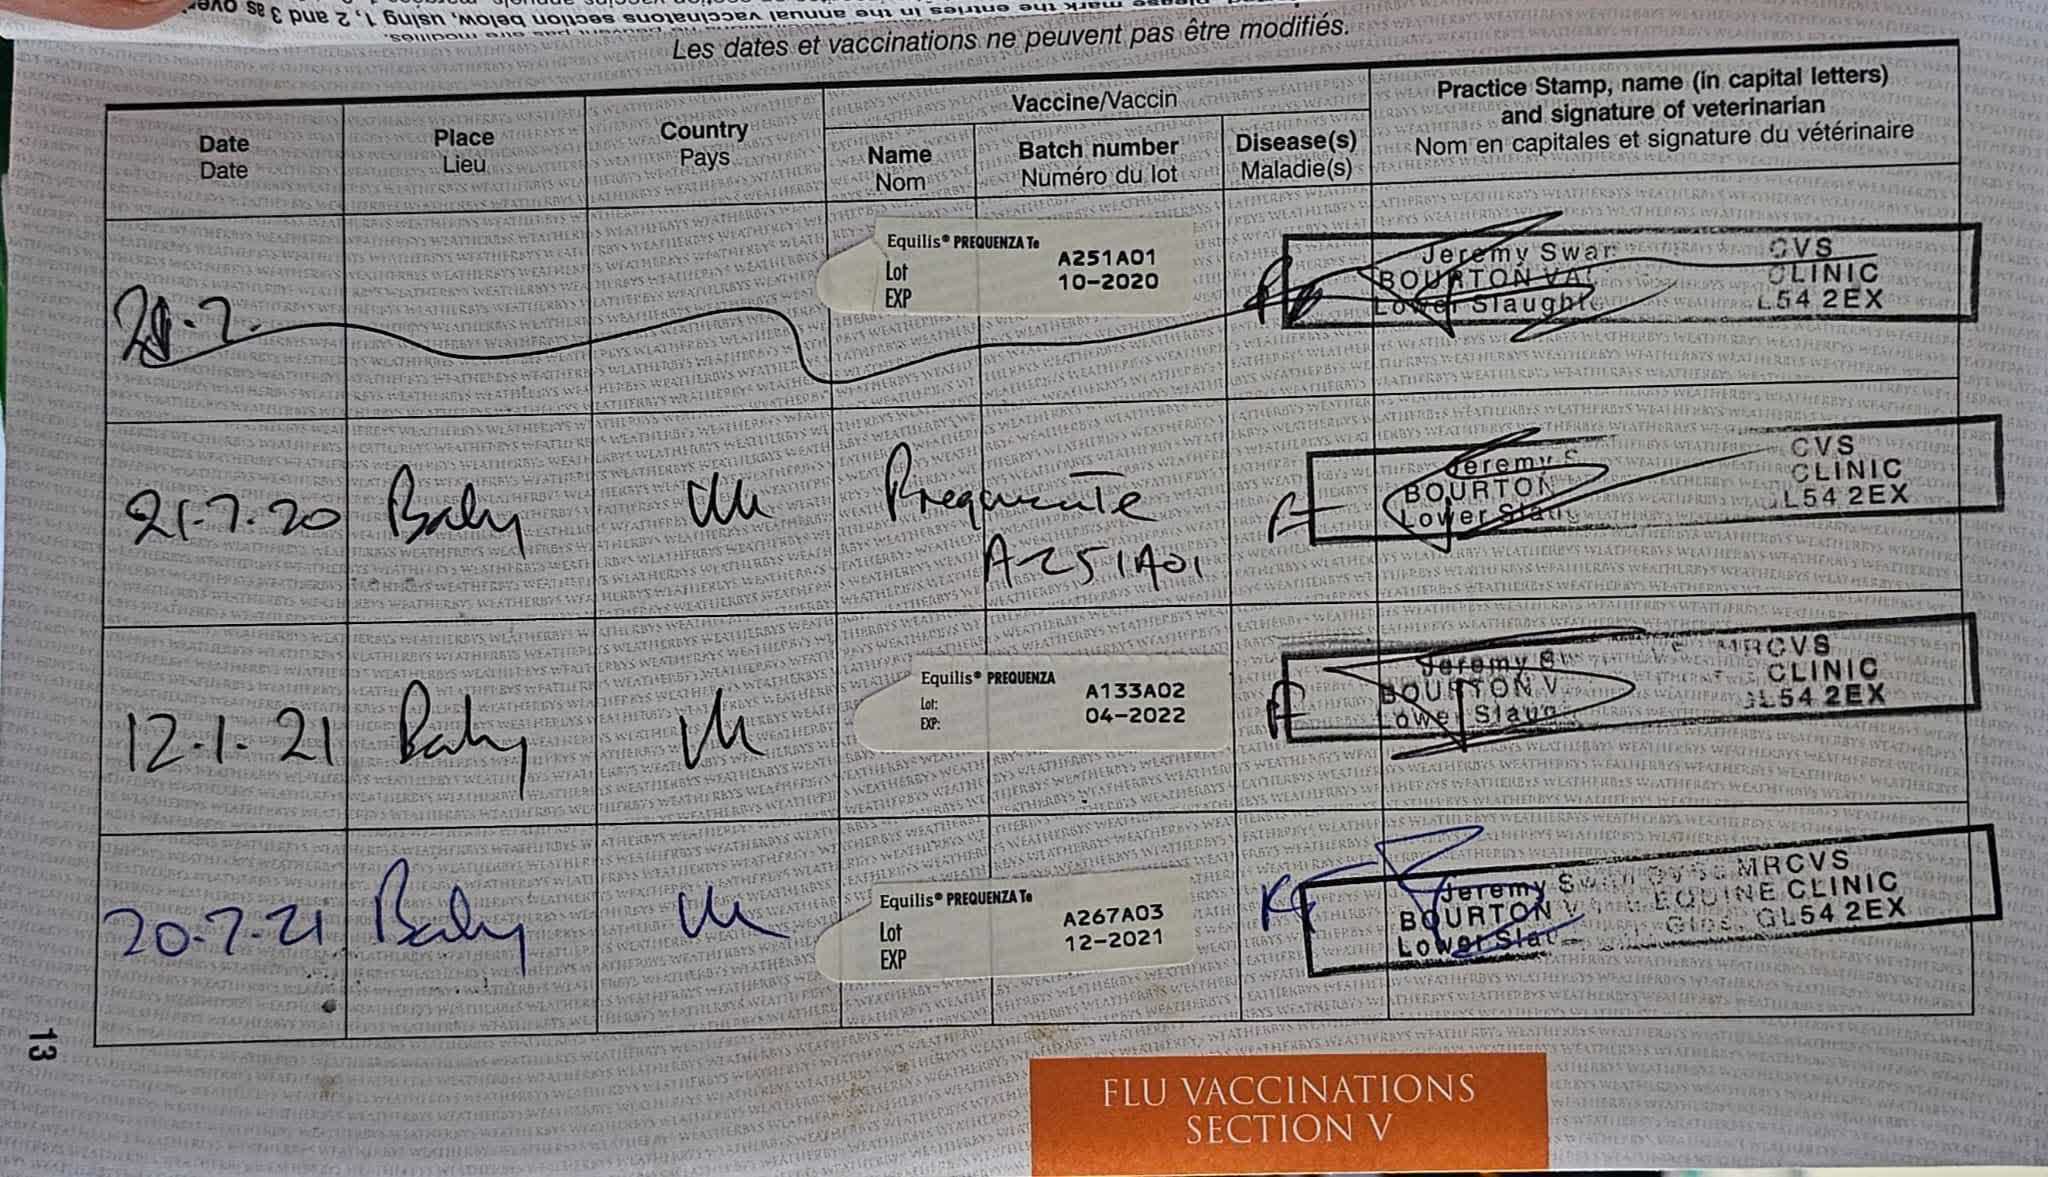 please mark the entries in the annual vaccinations section below, using 1, 2 and 3 as over
Les dates et vaccinations ne peuvent pas être modifiés.
Date
Date
Place
Lieu
Country
Pays
Vaccine/Vaccin
Name
Nom
Batch number
Numéro du lot
Disease(s)
Maladie(s)
Practice Stamp, name (in capital letters)
and signature of veterinarian
Nom en capitales et signature du vétérinaire
Equilis® PREQUENZA Te
Lot A251A01
EXP 10-2020
Jeremy Swa CVS
BOURTON VA CLINIC
Lower Slaught L54 2EX
21.7.20
A251A01
Jeremy S CVS
BOURTON CLINIC
Lower Slau L54 2EX
12.1.21
Equilis® PREQUENZA
Lot: A133A02
EXP: 04-2022
Jeremy S MRCVS
BOURTON V CLINIC
Lower Slaug GL54 2EX
20.7.21
Equilis® PREQUENZA Te
Lot A267A03
EXP 12-2021
Jeremy MRCVS
BOURTON V EQUINE CLINIC
Lower Slau Glos. GL54 2EX
13
FLU VACCINATIONS
SECTION V